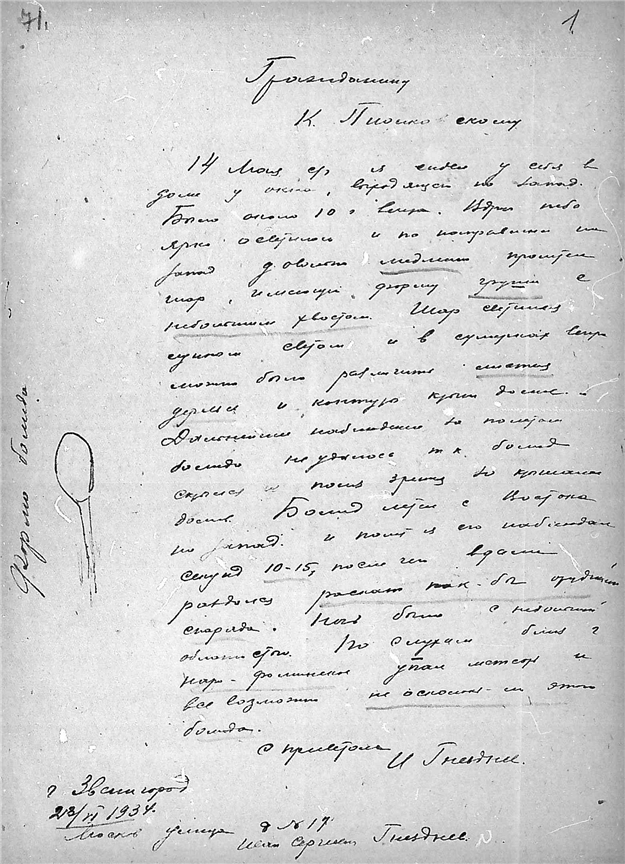 71.
1
Гражданину
К. Пионковскому
14 Мая с/г я сидел у себя в
доме у окна, выходящей на запад.
Было около 10 ч вечера. Вдруг небо
ярко осветилось и по направлению на
запад довольно медленно пролетел
шар, имеющий форму груши с
небольшим хвостом. Шар светился
светом и в сумерках вечера
можно было различить листья
деревьев и контуры крыш домов.
Дальнейшие наблюдения за полетом
болида не удалось т.к. болид
скрылся из поля зрения за крышами
домов. Болид летел с Востока
на запад и полет я его наблюдал
секунд 10-15, после чего вдали
раздался раскат как-бы орудийного
снаряда. Ночь была с небольшой
облачностью. По слухам близ г
Наро-Фоминска упал метеор и
все возможно не осколки-ли этого
болида.
с приветом
И Гнездив.
г Звенигород
23/VI 1934.
Москов улица д № 17
Иван Сергеевич Гнездив.
Форма болида